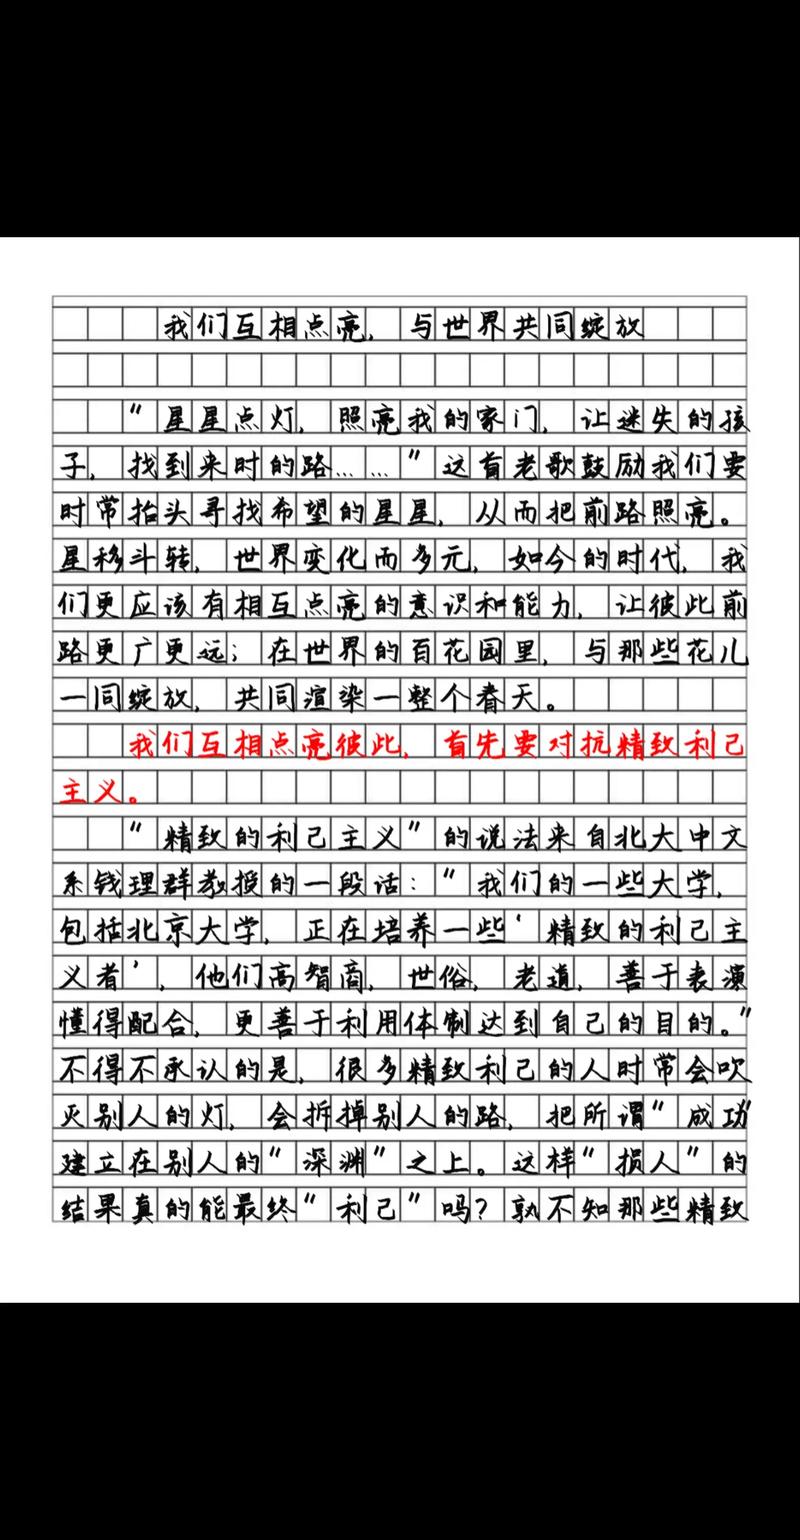 我们互相点亮，与世界共同绽放
“星星点灯，照亮我的家门，让迷失的孩
子，找到来时的路……”这首老歌鼓励我们要
时常抬头寻找希望的星星，从而把前路照亮。
星移斗转，世界变化而多元，如今的时代，我
们更应该有相互点亮的意识和能力，让彼此前
路更广更远；在世界的百花园里，与那些花儿
一同绽放，共同渲染一整个春天。
我们互相点亮彼此，首先要对抗精致利己
主义。
“精致的利己主义”的说法来自北大中文
系钱理群教授的一段话：“我们的一些大学，
包括北京大学，正在培养一些‘精致的利己主
义者’，他们高智商，世俗，老道，善于表演
懂得配合，更善于利用体制达到自己的目的。”
不得不承认的是，很多精致利己的人时常会吹
灭别人的灯，会拆掉别人的路，把所谓“成功”
建立在别人的“深渊”之上。这样“损人”的
结果真的能最终“利己”吗？孰不知那些精致